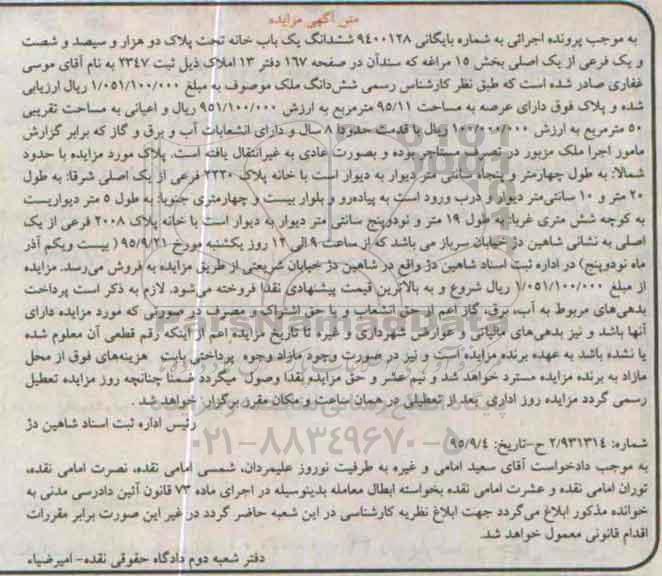 متن آگهی مزایده
به موجب پرونده اجرائی به شماره بایگانی ۹۴۰۰۱۲۸ ششدانگ یک باب خانه تحت پلاک دو هزار و سیصد و شصت
و یک فرعی از یک اصلی بخش ۱۵ مراغه که سندآن در صفحه ۱۶۷ دفتر ۱۳ املاک ذیل ثبت ۲۳۴۷ به نام آقای موسی
غفاری صادر شده است که طبق نظر کارشناس رسمی شش‌دانگ ملک موصوف به مبلغ ۱/۰۵۱/۱۰۰/۰۰۰ ریال ارزیابی
شده و پلاک فوق دارای عرصه به مساحت ۹۵/۱۱ مترمربع به ارزش ۹۵۱/۱۰۰/۰۰۰ ریال و اعیانی به مساحت تقریبی
۵۰ مترمربع به ارزش ۱۰۰/۰۰۰/۰۰۰ ریال با قدمت حدودا ۸ سال و دارای انشعابات آب و برق و گاز که برابر گزارش
مامور اجرا ملک مزبور در تصرف مستاجر بوده و بصورت عادی به غیرانتقال یافته است. پلاک مورد مزایده با حدود
شمالا: به طول چهارمتر و پنجاه سانتی متر دیوار به دیوار است با خانه پلاک ۲۳۳۰ فرعی از یک اصلی شرقا: به طول
۲۰ متر و ۱۰ سانتی‌متر دیوار و درب ورود است به پیاده‌رو و بلوار بیست و چهارمتری جنوبا: به طول ۵ متر دیواریست
به کوچه شش متری غربا: به طول ۱۹ متر و نودوپنج سانتی متر دیوار به دیوار است با خانه پلاک ۲۰۰۸ فرعی از یک
اصلی به نشانی شاهین دژ خیابان سرباز می باشد که از ساعت ۹ الی ۱۲ روز یکشنبه مورخ ۹۵/۹/۲۱ ( بیست ویکم آذر
ماه نودوپنج) در اداره ثبت اسناد شاهین دژ واقع در شاهین دژ خیابان شریعتی از طریق مزایده به فروش می‌رسد. مزایده
از مبلغ ۱/۰۵۱/۱۰۰/۰۰۰ ریال شروع و به بالاترین قیمت پیشنهادی نقدا فروخته می‌شود. لازم به ذکر است پرداخت
بدهی‌های مربوط به آب، برق، گاز اعم از حق انشعاب و یا حق اشتراک و مصرف در صورتی که مورد مزایده دارای
آنها باشد و نیز بدهی‌های مالیاتی و عوارض شهرداری و غیره تا تاریخ مزایده اعم از اینکه رقم قطعی آن معلوم شده
یا نشده باشد به عهده برنده مزایده است و نیز در صورت وجود مازاد وجوه پرداختی بابت هزینه‌های فوق از محل
مازاد به برنده مزایده مسترد خواهد شد و نیم عشر و حق مزایده نقدا وصول میگردد ضمنا چنانچه روز مزایده تعطیل
رسمی گردد مزایده روز اداری بعد از تعطیلی در همان ساعت و مکان مقرر برگزار خواهد شد .
رئیس اداره ثبت اسناد شاهین دژ
شماره: ۲/۹۳۱۳۱۴ ح-تاریخ: ۹۵/۹/۴
به موجب دادخواست آقای سعید امامی و غیره به طرفیت نوروز علیمردان، شمسی امامی نقده، نصرت امامی نقده،
توران امامی نقده و عشرت امامی نقده بخواسته ابطال معامله بدینوسیله در اجرای ماده ۷۳ قانون آئین دادرسی مدنی به
خوانده مذکور ابلاغ می‌گردد جهت ابلاغ نظریه کارشناسی در این شعبه حاضر گردد در غیر این صورت برابر مقررات
اقدام قانونی معمول خواهد شد.
دفتر شعبه دوم دادگاه حقوقی نقده- امیرضیاء
ParsNamadData
۰۲۱-۸۸۳۴۹۶۷۰-۵